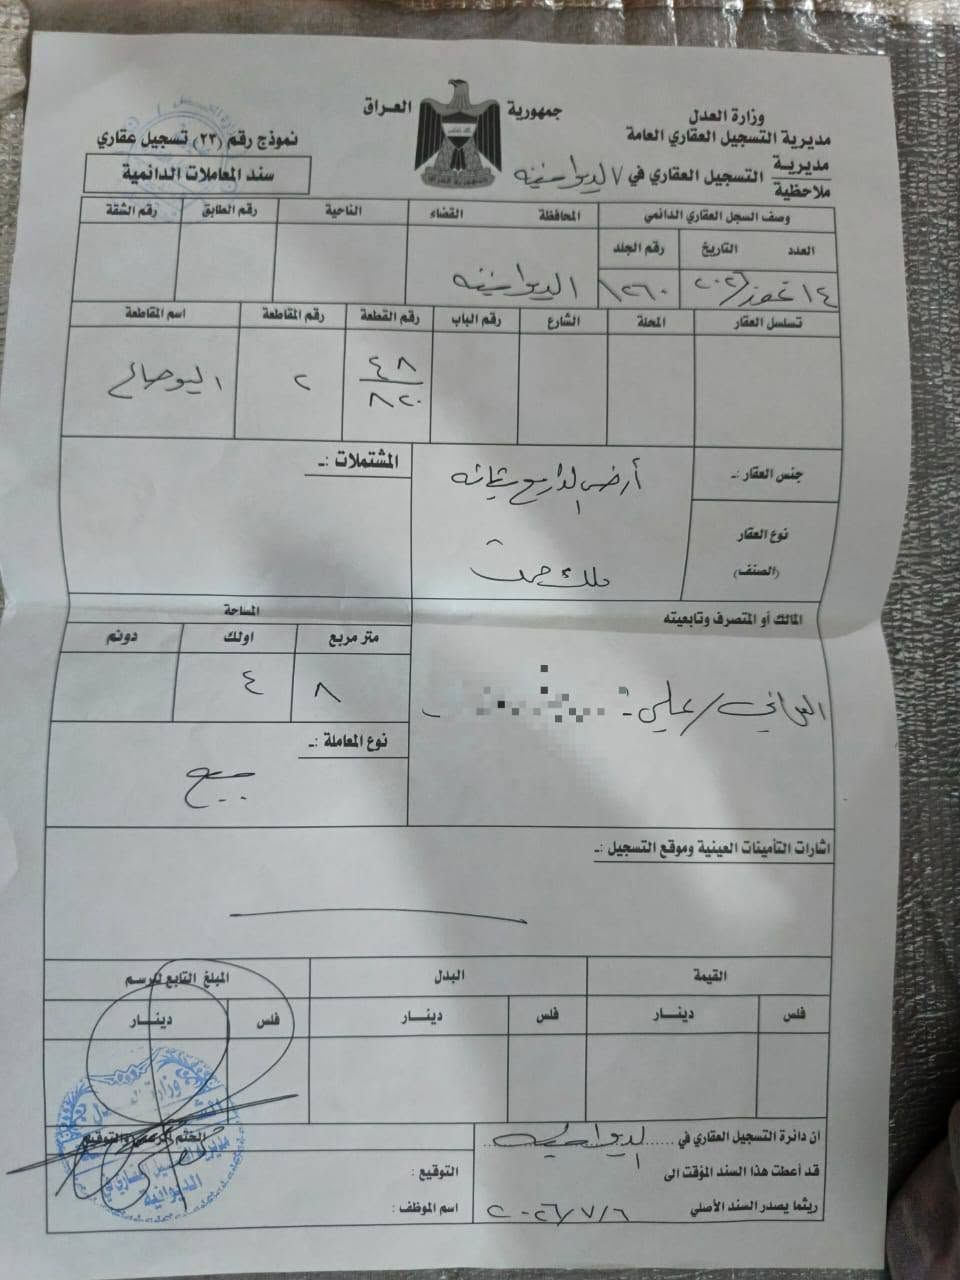 جمهورية العراق
وزارة العدل
مديرية التسجيل العقاري العامة
مديرية
ملاحظية
التسجيل العقاري في / الديوانية
نموذج رقم (٢٣) تسجيل عقاري
سند المعاملات الدائمية
وصف السجل العقاري الدائمي
المحافظة
القضاء
الناحية
رقم الطابق
رقم الشقة
العدد
التاريخ
رقم الجلد
١٤ تموز/٢٠٢٦
١٢٦٠
الديوانية
تسلسل العقار
المحلة
الشارع
رقم الباب
رقم القطعة
رقم المقاطعة
اسم المقاطعة
٤٨
٨٢٠
٢
البوصالح
جنس العقار :ـ
أرض
المشتملات :ـ
نوع العقار
(الصنف)
ملك صرف
المالك أو المتصرف وتابعيته
المساحة
متر مربع
اولك
دونم
٨
٤
العراقي / علي
نوع المعاملة :ـ
بيع
اشارات التأمينات العينية وموقع التسجيل :ـ
القيمة
البدل
المبلغ التابع للرسم
فلس
دينـــار
فلس
دينـــار
فلس
دينـــار
ان دائرة التسجيل العقاري في ...... الديوانية
الختم الرسمي والتوقيع
قد أعطت هذا السند المؤقت الى
التوقيع :
ريثما يصدر السند الأصلي
٢٠٢٦/٧/٦
اسم الموظف :
الديوانية